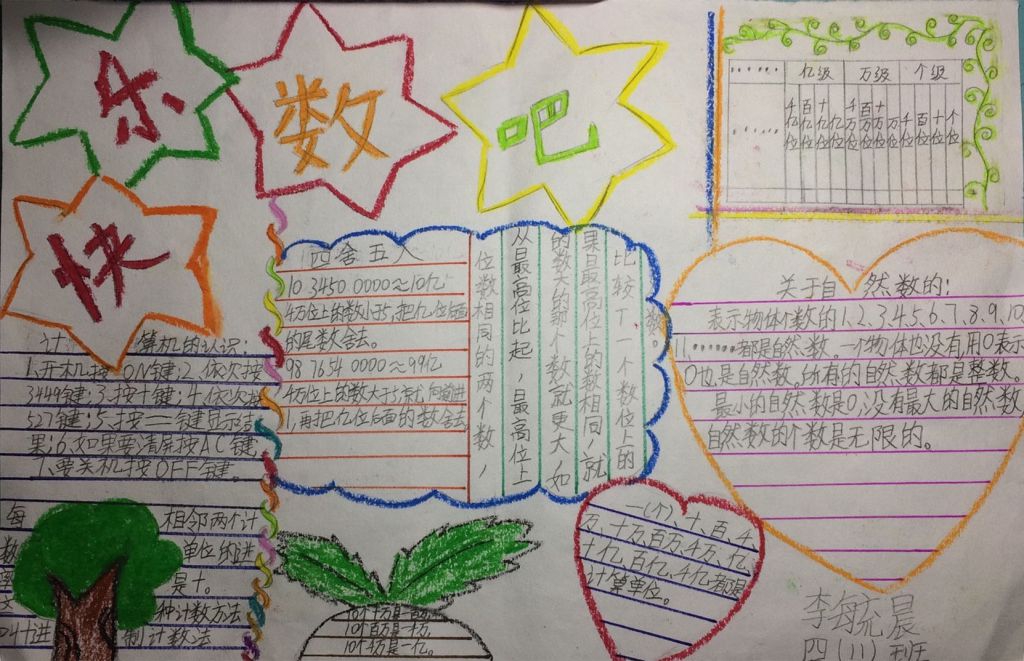 乐
数
吧
快
亿级 万级 个级
千亿位 百亿位 十亿位 亿位 千万位 百万位 十万位 万位 千位 百位 十位 个位
四舍五入
10 3450 0000≈10亿
千万位上的数小于5,把亿位后面
的尾数舍去。
98 7654 0000≈99亿
千万位上的数大于5,就向前进
1,再把亿位后面的数舍去
位数相同的两个数,
从最高位比起,最高位上
的数大的那个数就更大,如
果最高位上的数相同,就
比较下一个数位上的
数。
关于自然数的:
表示物体个数的1、2、3、4、5、6、7、8、9、10
11、……都是自然数。一个物体也没有用0表示
0也是自然数。所有的自然数都是整数。
最小的自然数是0,没有最大的自然数
自然数的个数是无限的。
计算机的认识:
1、开机按ON键;2、依次按
3444键;3、按+键;4、依次按
527键;5、按=键显示结
果;6、如果要清屏按AC键
7、要关机按OFF键。
每 相邻两个计
数 单位的进
是十。
种计数方法
叫十进 制计数法
10个十万是一百万,
10个百万是一千万,
10个千万是一亿。
一(个)、十、百、千
万、十万、百万、千万、亿、
十亿、百亿、千亿都是
计算单位。
李每充晨
四(11)班